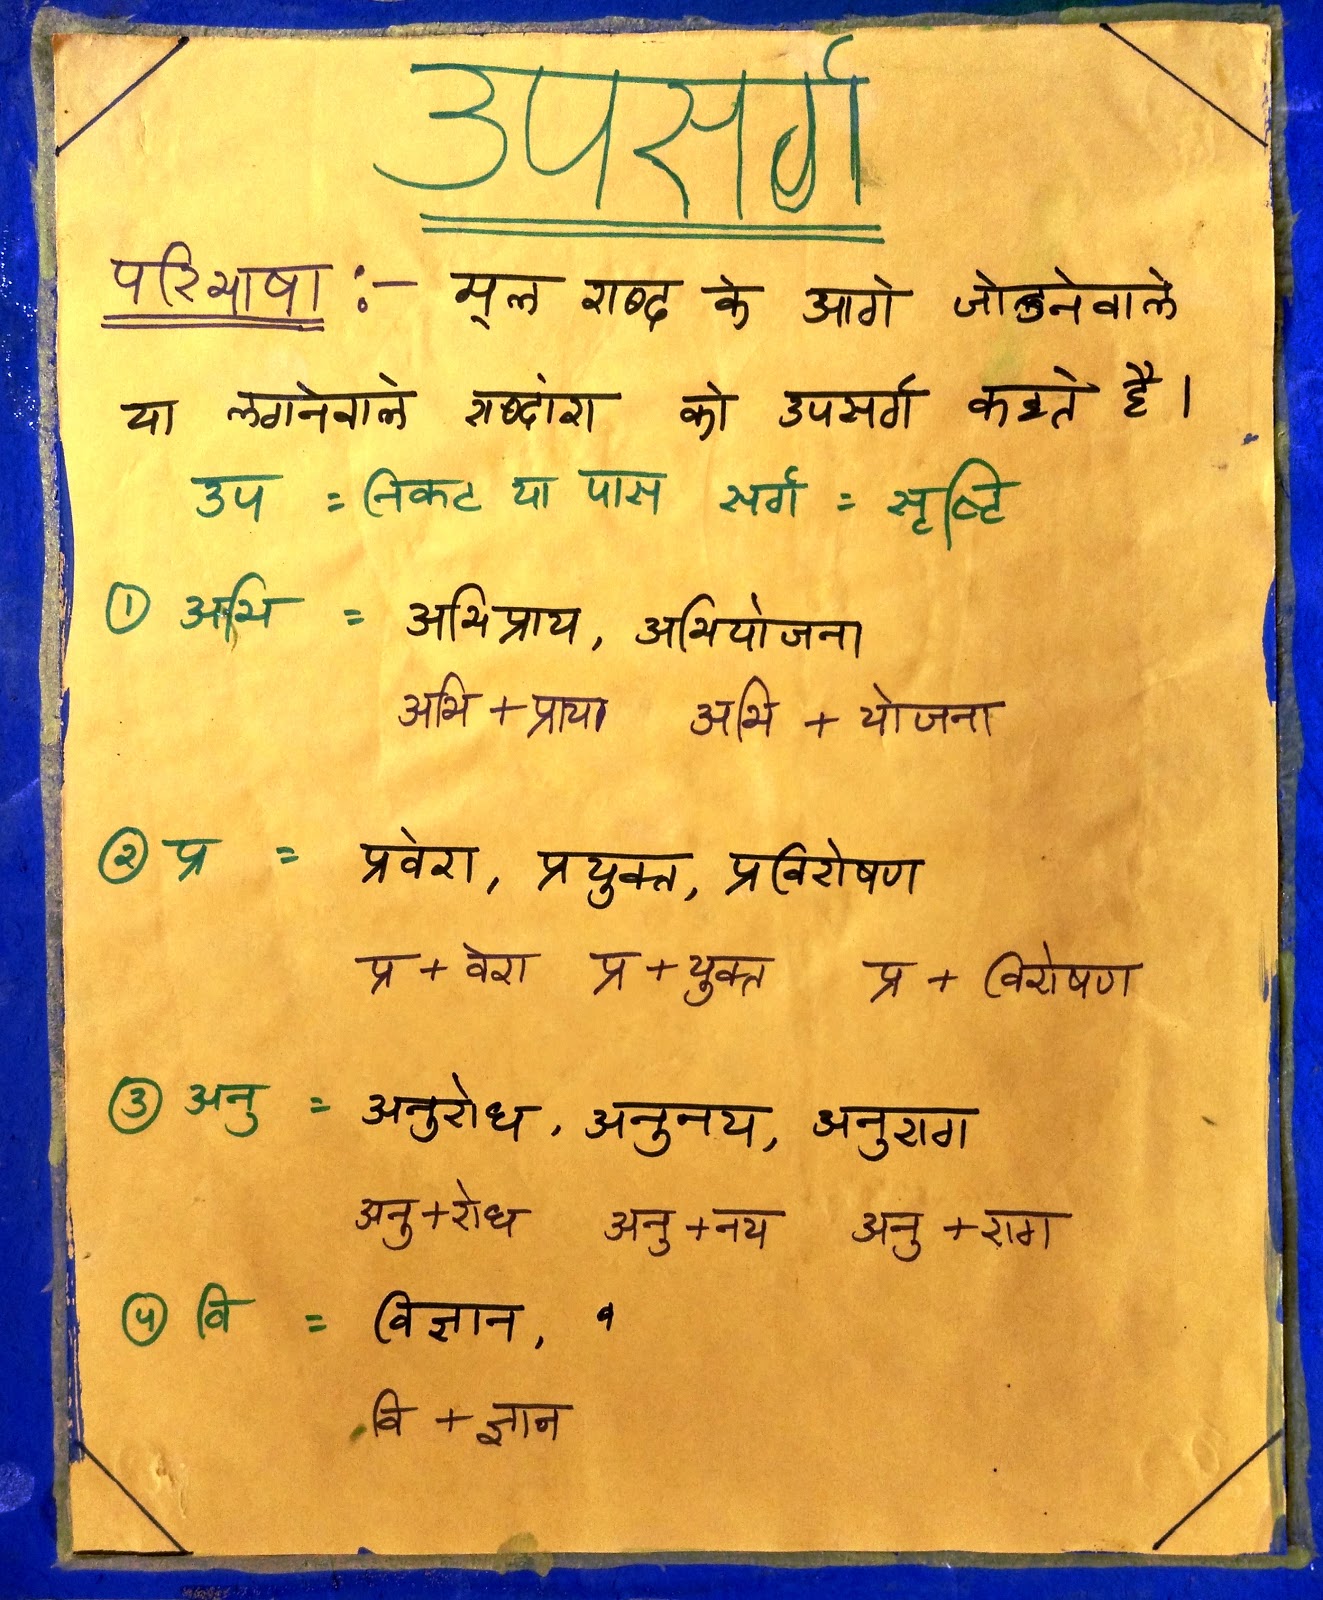 उपसर्ग
परिभाषा :- मूल शब्द के आगे जोडनेवाले
या लगनेवाले शब्दांश को उपसर्ग कहते है।
उप = निकट या पास सर्ग = सृष्टि
① अभि = अभिप्राय, अभियोजना
अभि + प्राया अभि + योजना
② प्र = प्रवेश, प्रयुक्त, प्रविशेषण
प्र + वेश प्र + युक्त प्र + विशेषण
③ अनु = अनुरोध, अनुनय, अनुराग
अनु + रोध अनु + नय अनु + राग
④ वि = विज्ञान,
वि + ज्ञान